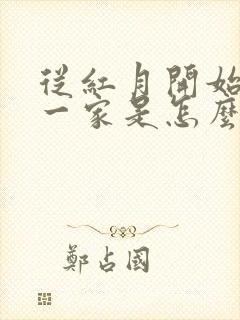 從紅月開始
一家是怎麼
鄭占國